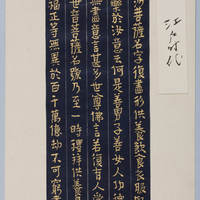 江戸時代
沙菩薩名字復盡形供養飲食衣服
藥於汝意云何是善男子善女人功德
無盡意言甚多世尊佛言若復有人
世音菩薩名號乃至一時禮拜供養
福正等無異於百千萬億劫不可窮